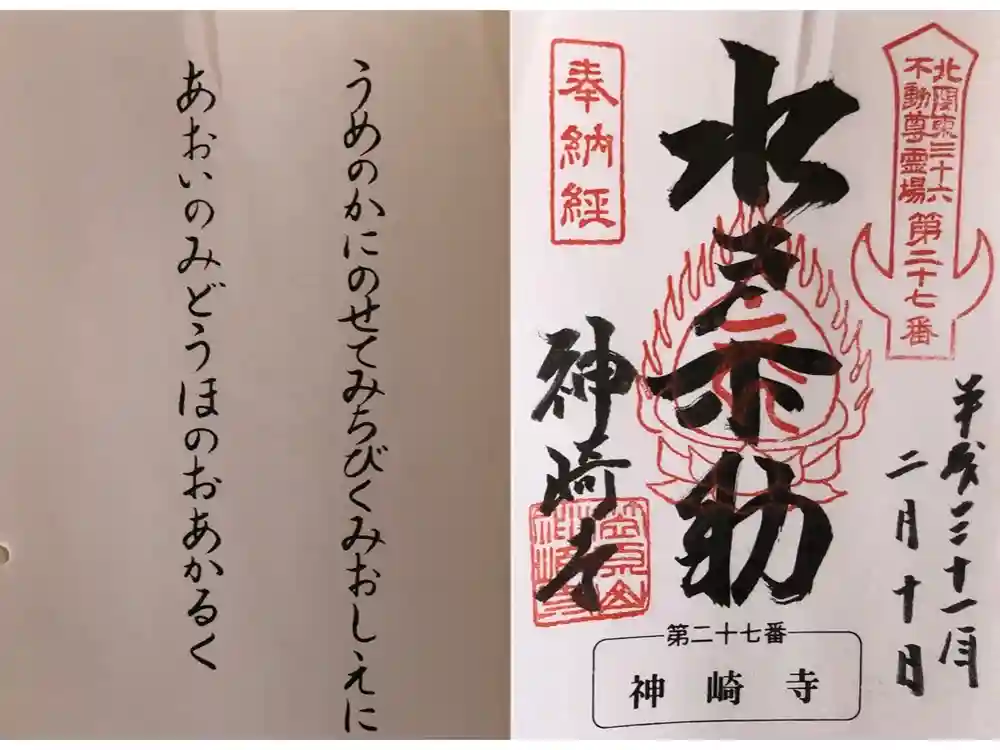 うめのかにのせてみちびくみおしえに
あおいのみどうほのおあかるく
北関東三十六
不動尊霊場
第二十七番
平成三十一年
二月十日
奉納経
神崎寺
第二十七番
神崎寺